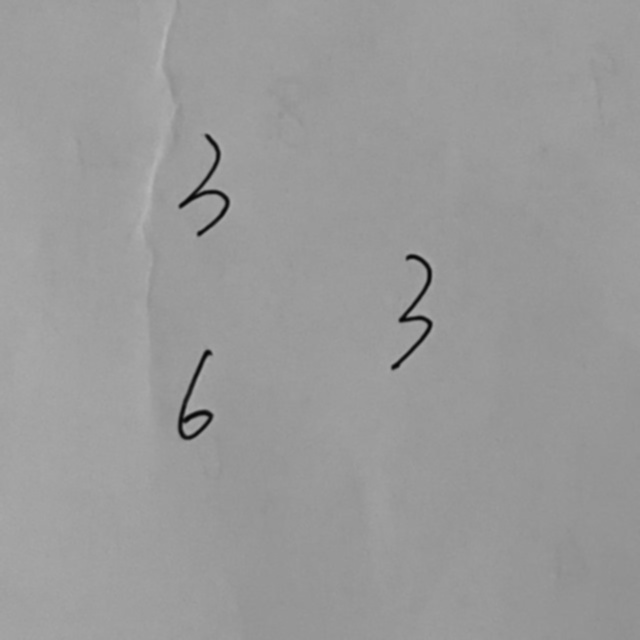 3
3
6